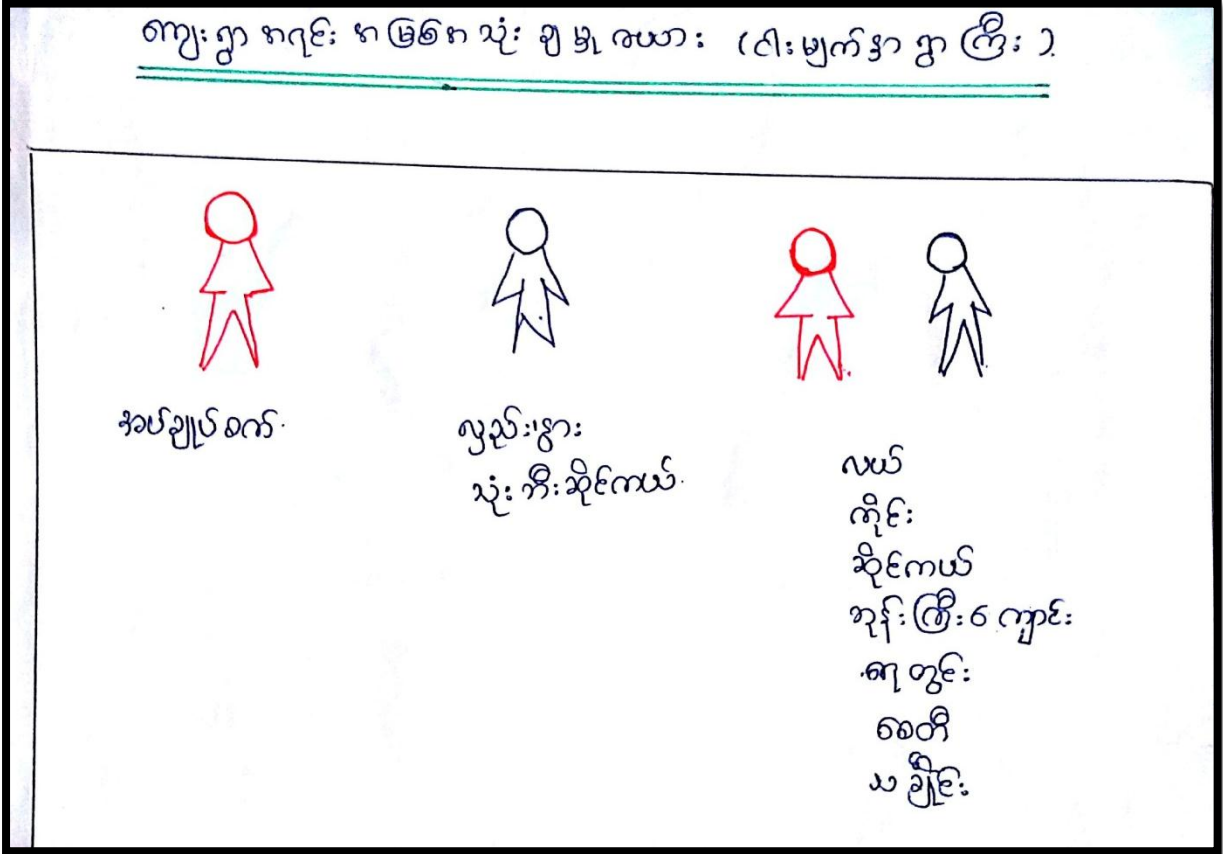 ကျေးရွာ အရင်း အမြစ်အသုံးချမှု ဇယား (ငါးမျက်နှာ ရွာကြီး)
အပ်ချုပ်စက်
လှည်း၊နွား
သုံးဘီးဆိုင်ကယ်
လယ်
ကိုင်း
ဆိုင်ကယ်
ဘုန်းကြီးကျောင်း
ရေတွင်း
စေတီ
သချိုင်း